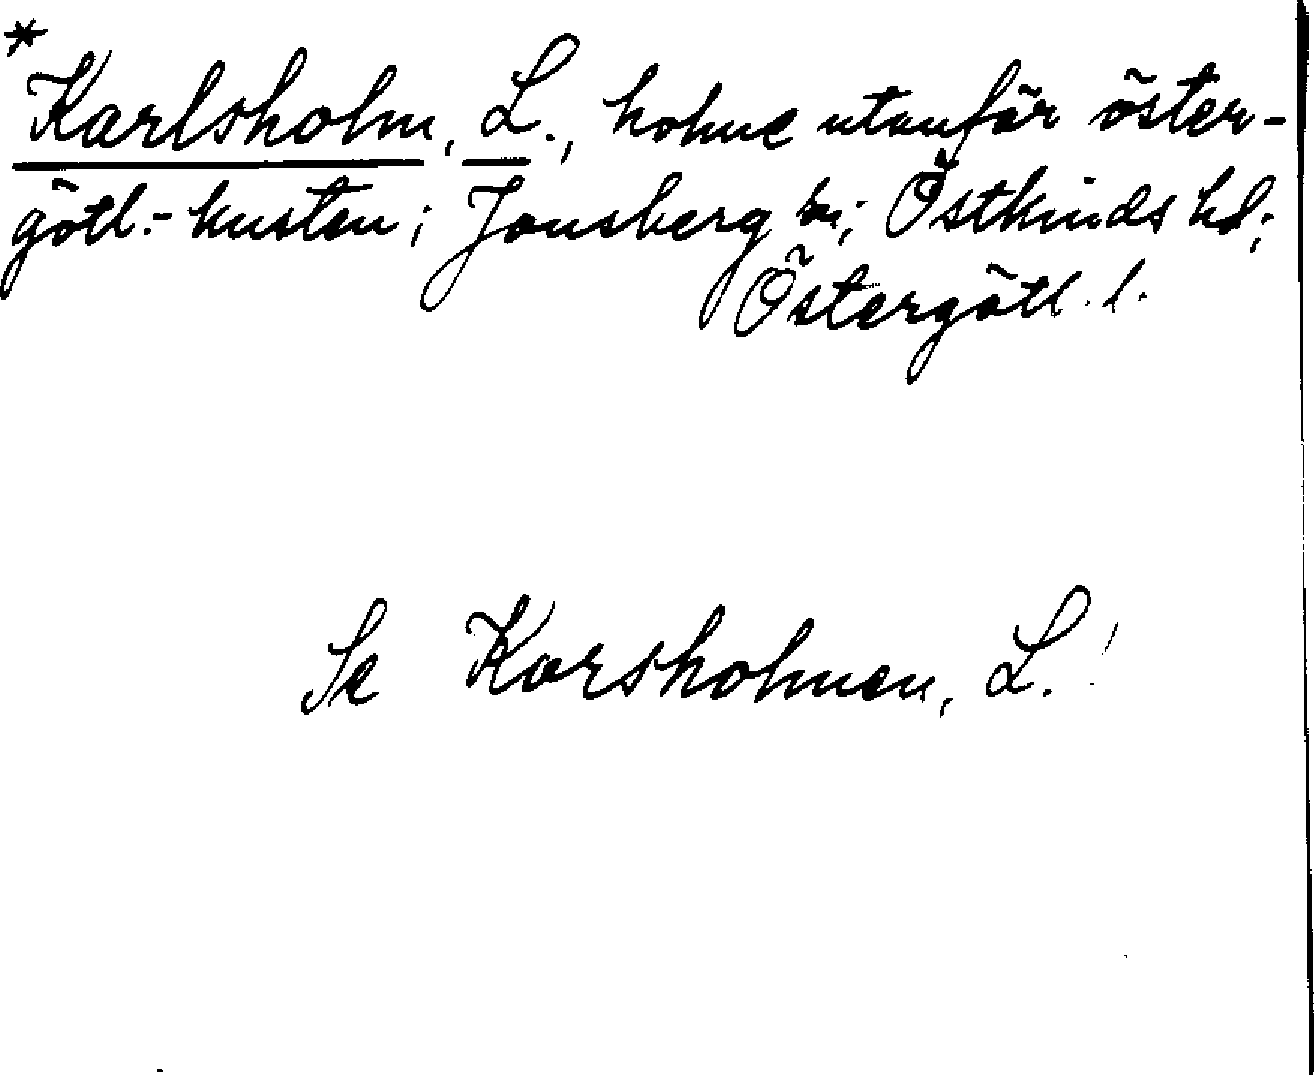 * Karlsholm, L., holme utanför öster-
götl.-kusten; Jonsberg sn; Östkinds hd;
Östergötl. l.
Se Karsholmen, L.!